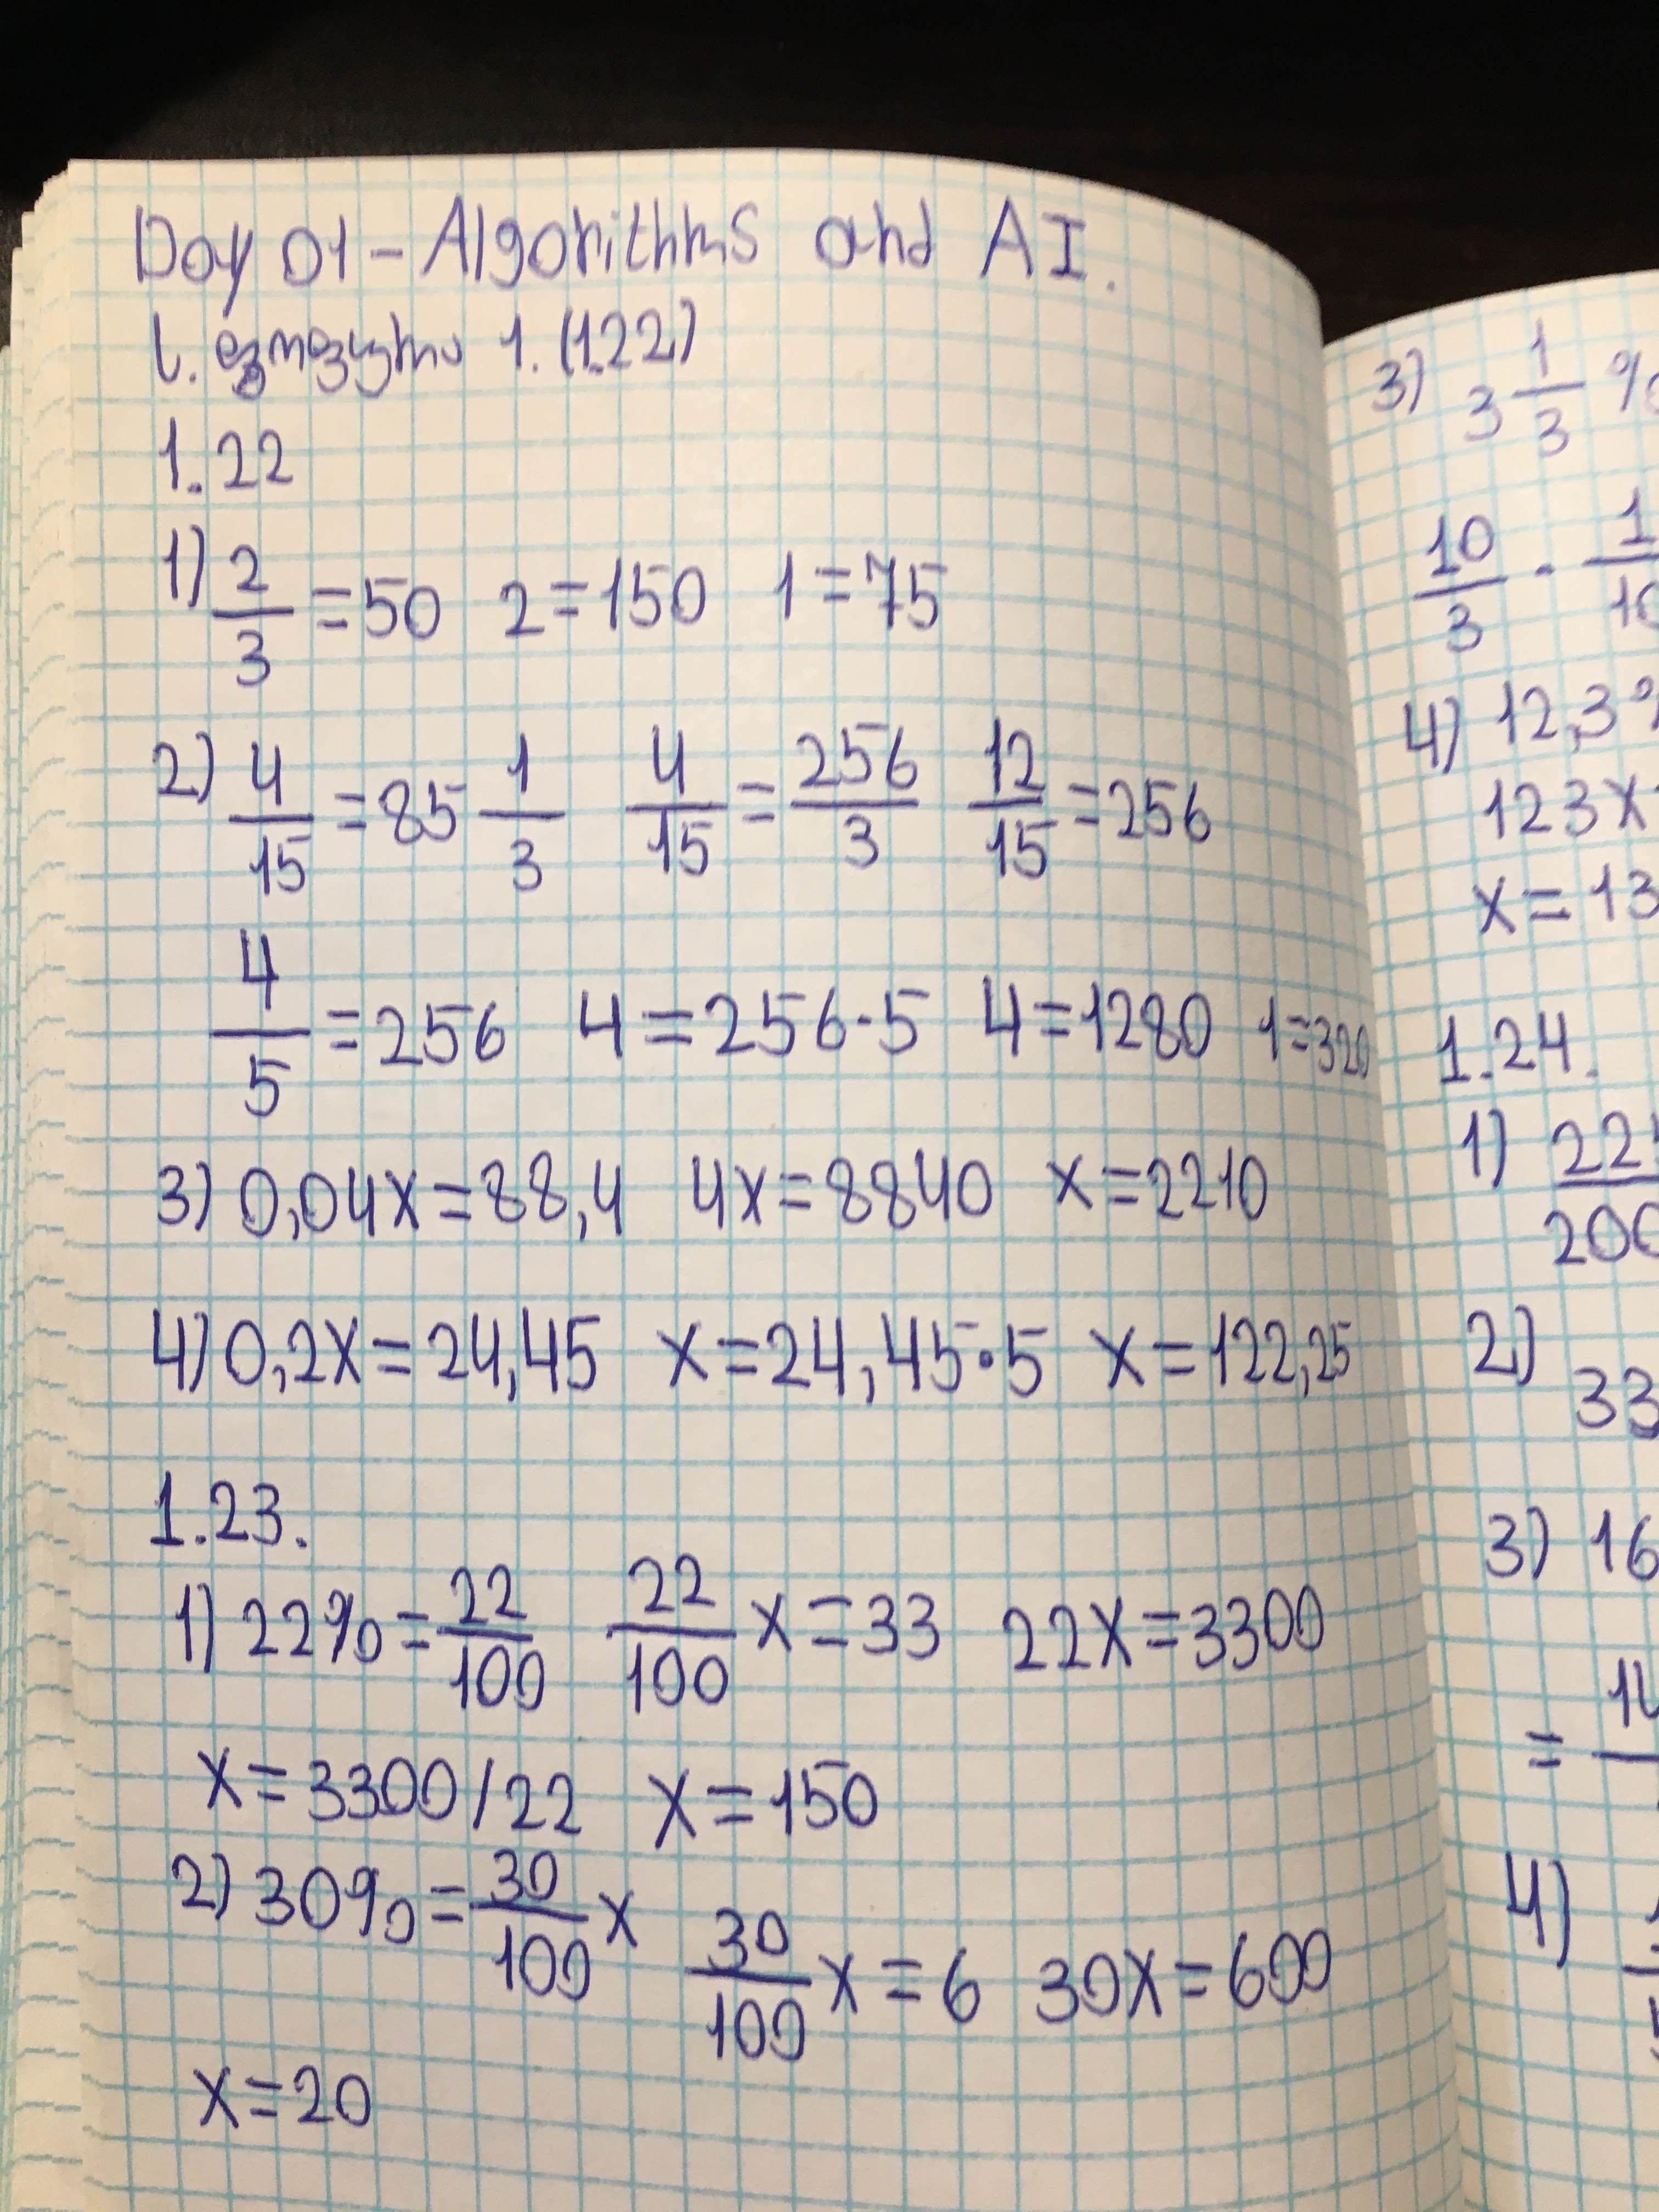 Day 01 - Algorithms and AI.
1. (1.22)
1.22
1) 2/3 = 50 2 = 150 1 = 75
2) 4/15 = 85 1/3 4/15 = 256/3 12/15 = 256
4/5 = 256 4 = 256·5 4 = 1280 1 = 320
3) 0,04x = 88,4 4x = 8840 x = 2210
4) 0,2x = 24,45 x = 24,45·5 x = 122,25
1.23.
1) 22% = 22/100 22/100 x = 33 22x = 3300
x = 3300/22 x = 150
2) 30% = 30/100 x 30/100 x = 6 30x = 600
x = 20
3) 3 1/3 %
10/3 ·
4) 12,3%
123x
x = 13
1.24.
1)
2) 33
3) 16
=
4)